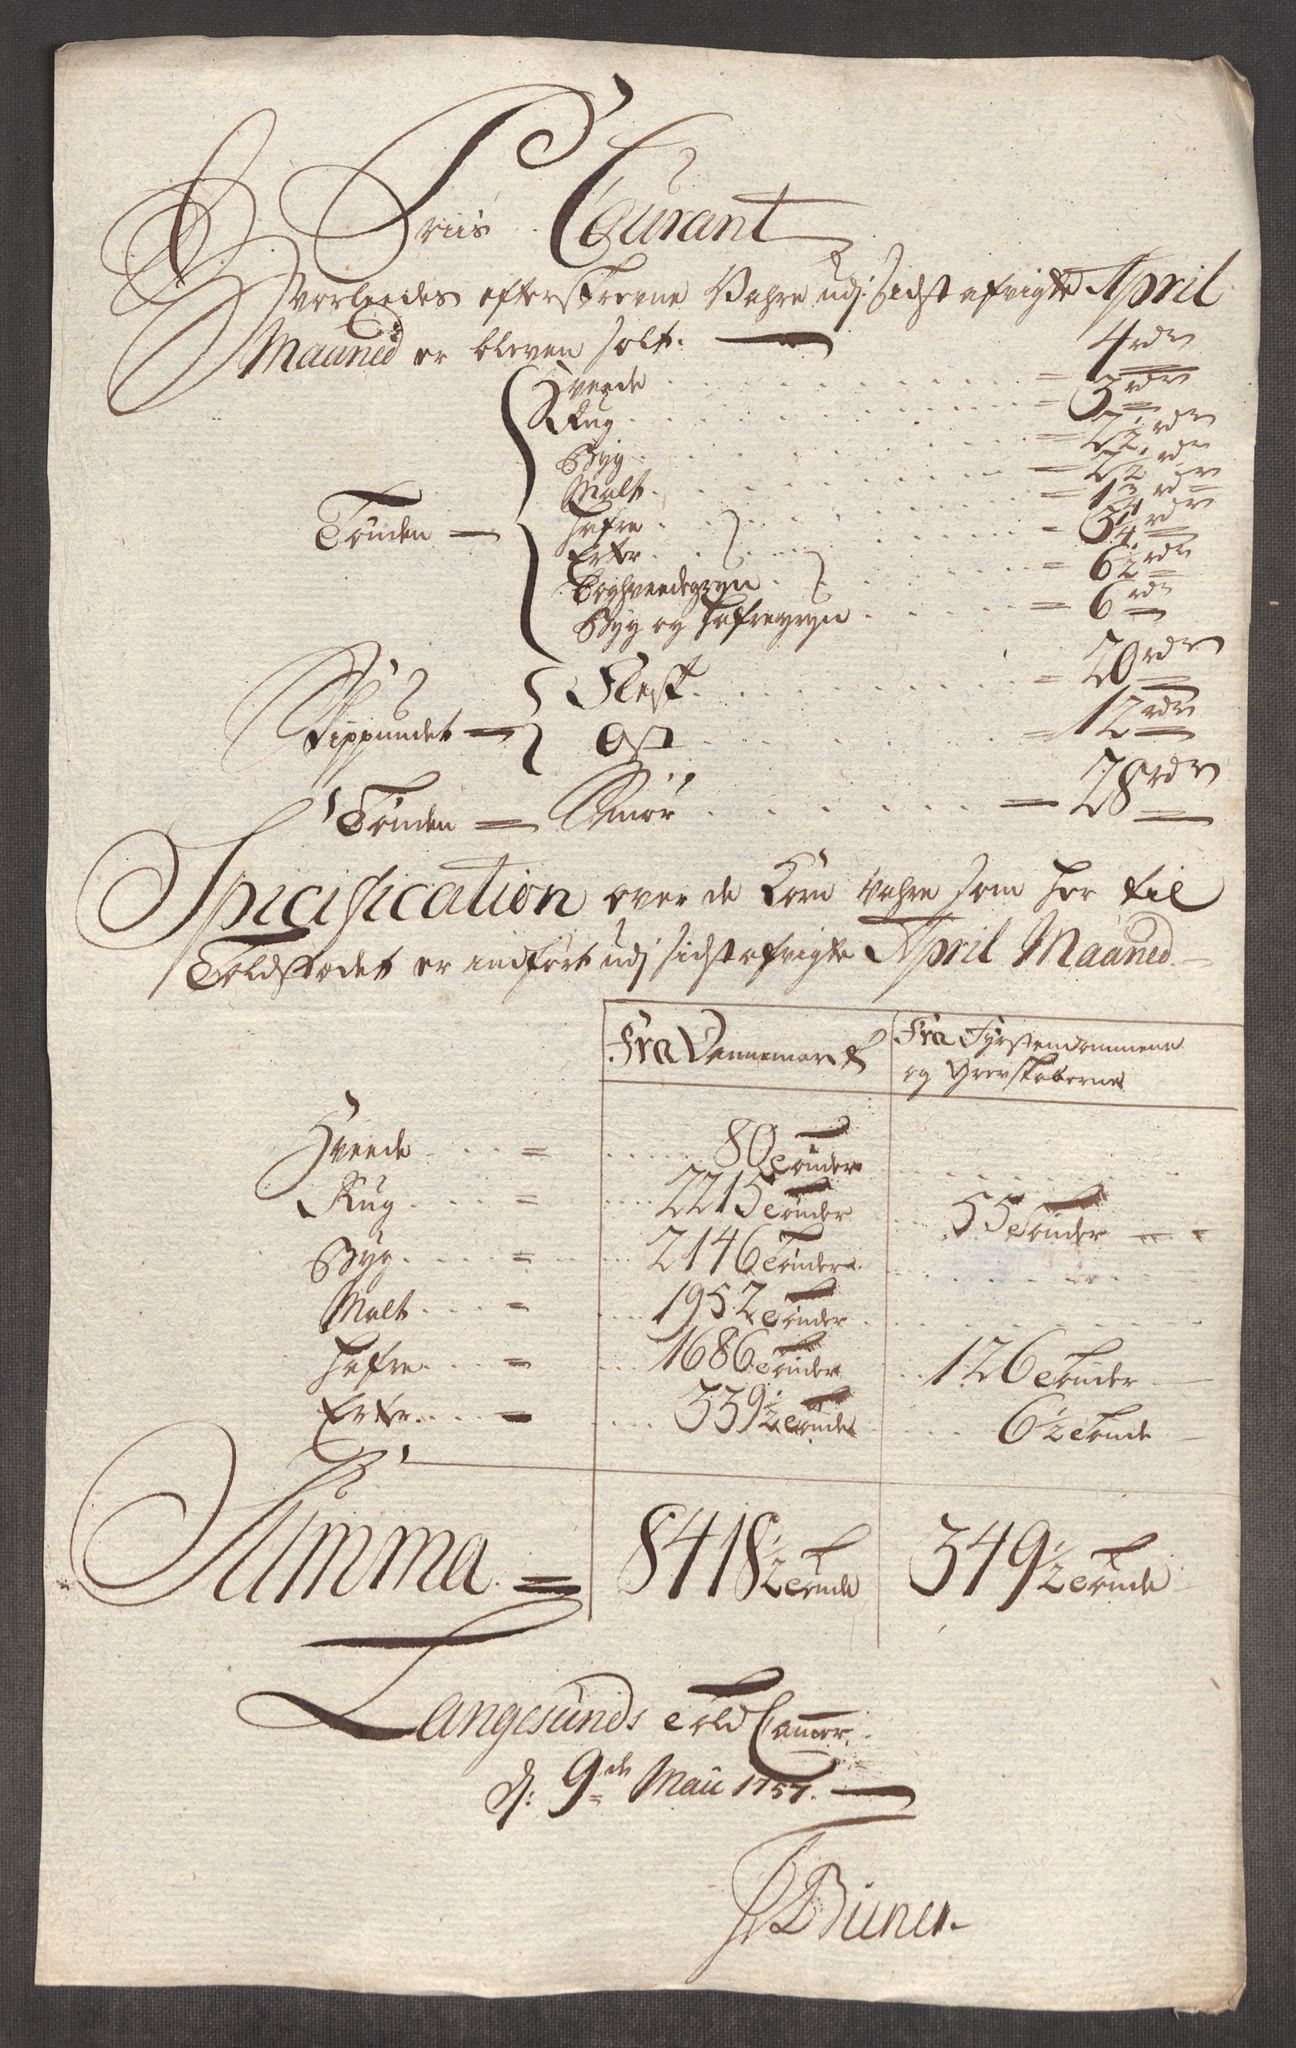 Priis Courant
Hvorleedes efterskrevne Vahre udj sidst afvigte April
Maaned er bleven solt.
Tönden =
Hveede = 4 rdr
Rug = 3 rdr
Byg = 2 1/2 rdr
Malt = 2 1/2 rdr
Hafre = 1 3/4 rdr
Erter = 3 1/4 rdr
Boghveedegryn = 6 1/2 rdr
Byg og Hafregryn = 6 rdr
Skippundet =
Flesk = 20 rdr
Ost = 12 rdr
Tönden = Smör = 28 rdr
Specification over de Korn Vahre som her til
Toldstædet er indfört udj sidst afvigte April Maaned
Fra Dannemark
Fra Fyrstendommene
og Grevskaberne
Hveede = 80 Tönder
Rug = 2215 Tönder 55 Tönder
Byg = 2146 Tönder
Malt = 1952 Tönder
Hafre = 1686 Tönder 126 Tönder
Erter = 339 1/2 Tönde 6 1/2 Tönde
Summa = 8418 1/2 Tönde 349 1/2 Tönde
Langesunds Told Camer
d: 9de Maii 1757.